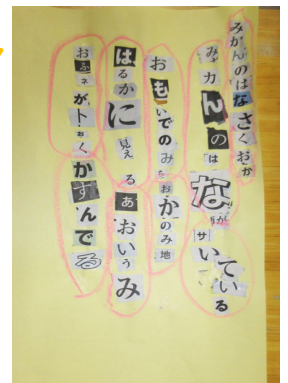 みかんのはなさくおか
みカんのはなが サいている
おもいでのみちおかのみ地
はるかに見えるあおいうみ
おふネがトおくかすんでる